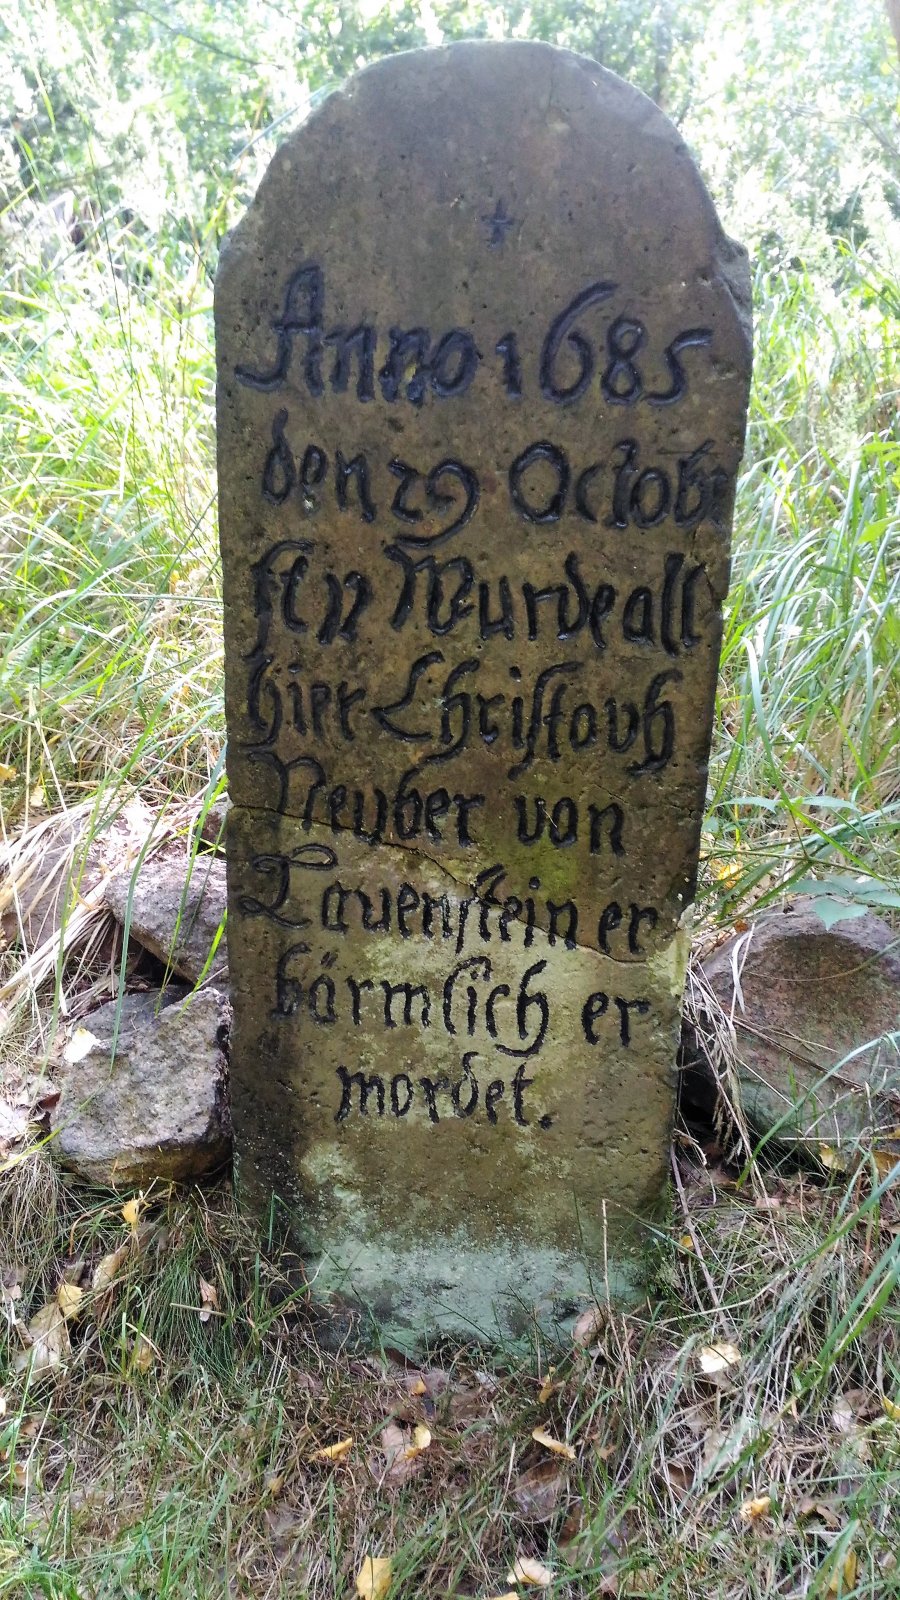 Anno 1685
den 29 Octobr
st n Wurde all
hier Christoph
Neuber von
Lauenstein er
bärmlich er
mordet.